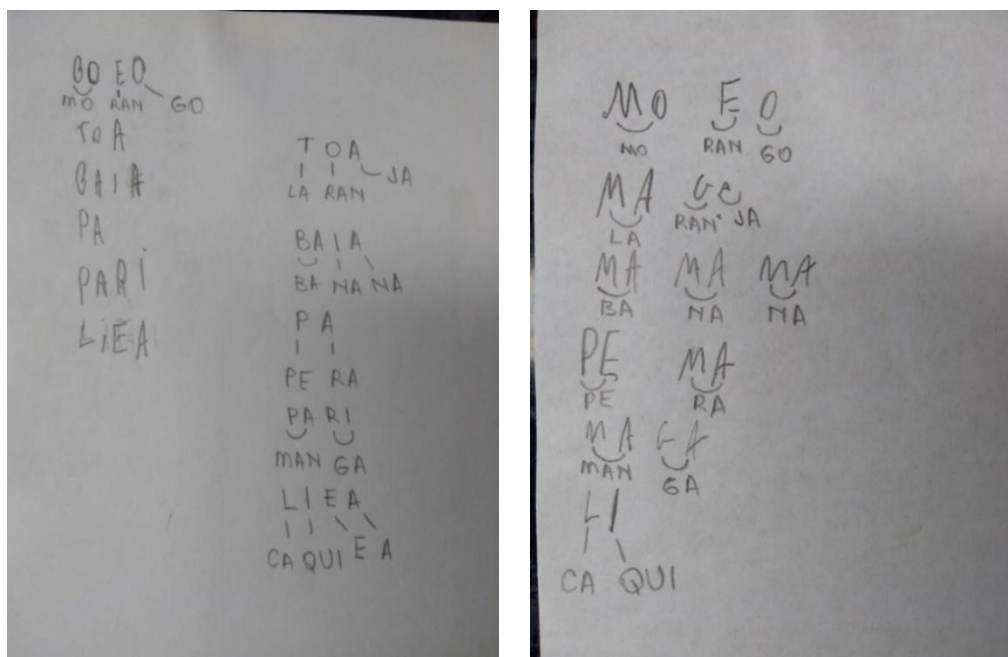 BO E O
MO RAN GO
TOA
BAIA
PA
PARI
LIEA
TOA
LA RAN JA
BAIA
BA NA NA
PA
PE RA
PARI
MAN GA
LIEA
CA QUI E A
MO E O
MO RAN GO
MA GE
LA RAN JA
MA MA MA
BA NA NA
PE MA
PE RA
MA GA
MAN GA
LI
CA QUI